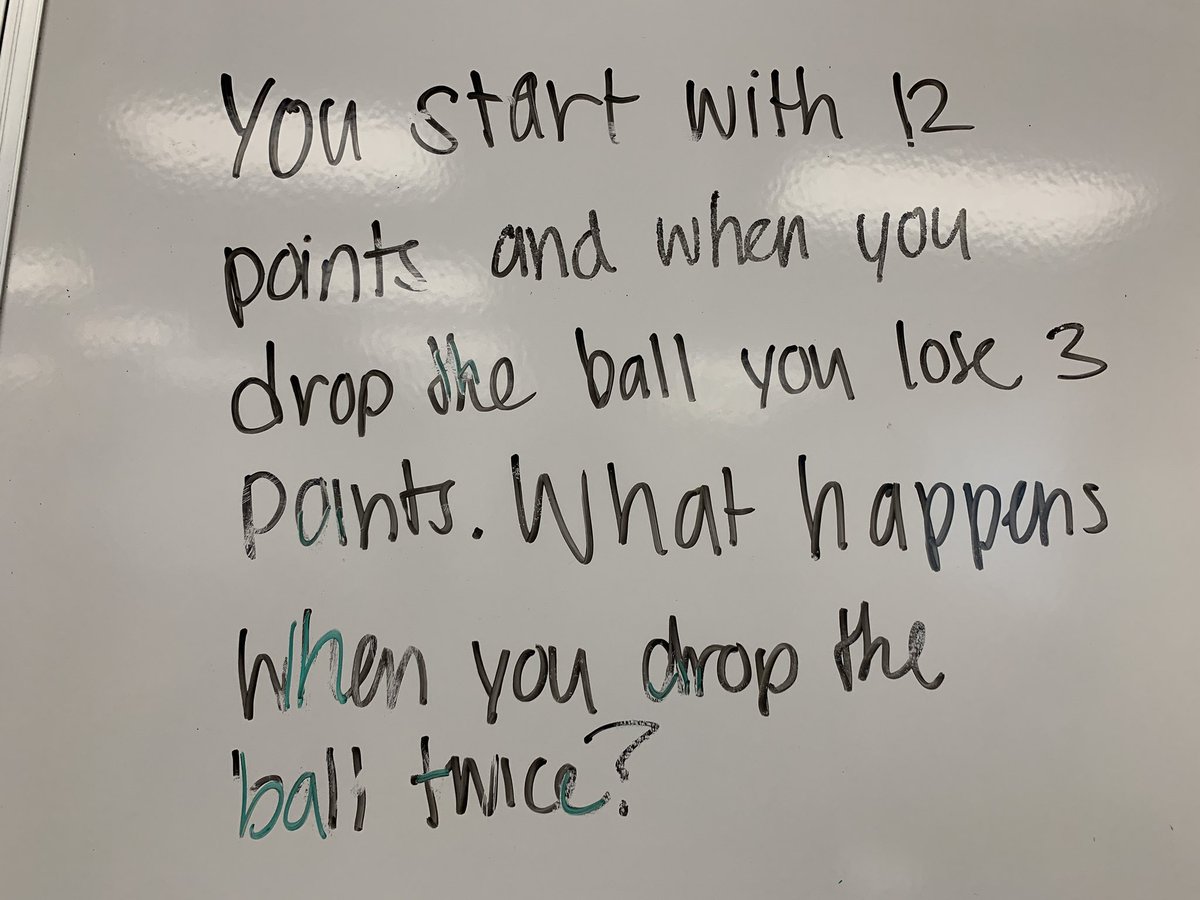 You start with 12
points and when you
drop the ball you lose 3
points. What happens
when you drop the
ball twice?